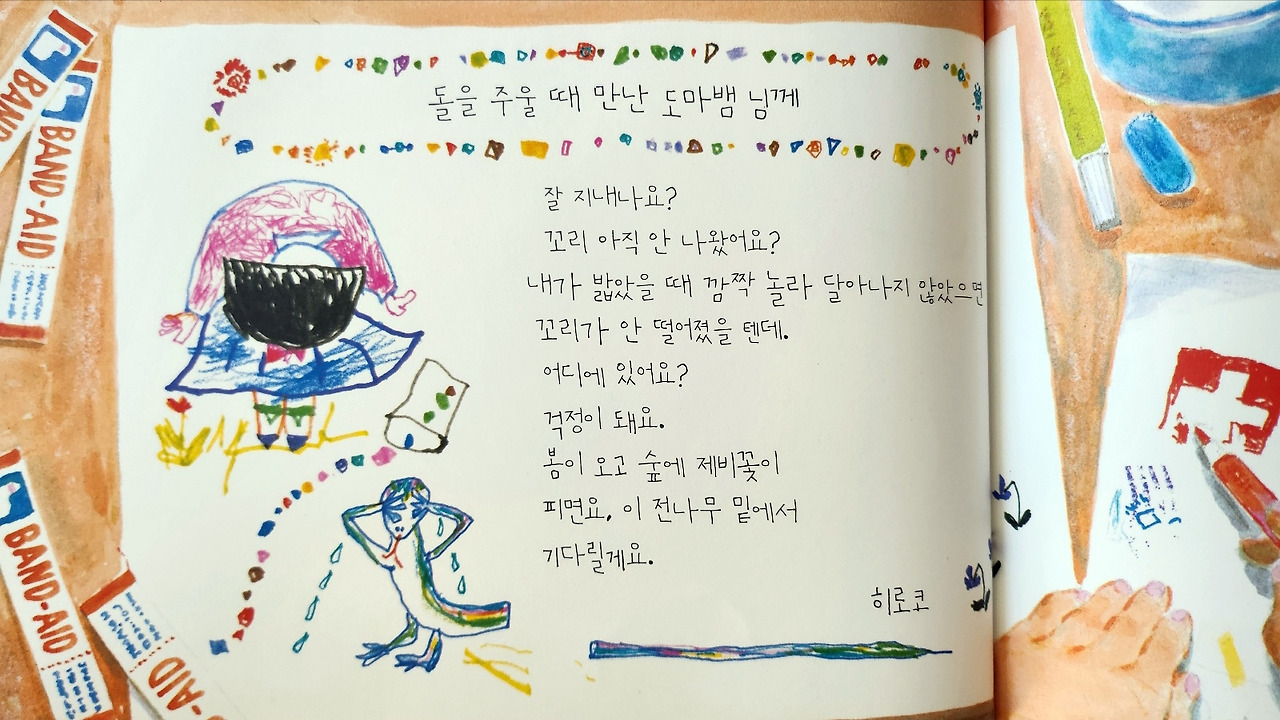 돌을 주울 때 만난 도마뱀 님께
잘 지내나요?
꼬리 아직 안 나왔어요?
내가 밟았을 때 깜짝 놀라 달아나지 않았으면
꼬리가 안 떨어졌을 텐데.
어디에 있어요?
걱정이 돼요.
봄이 오고 숲에 제비꽃이
피면요, 이 전나무 밑에서
기다릴게요.
히로코
BAND
BAND-AID
BAND-AID
AID